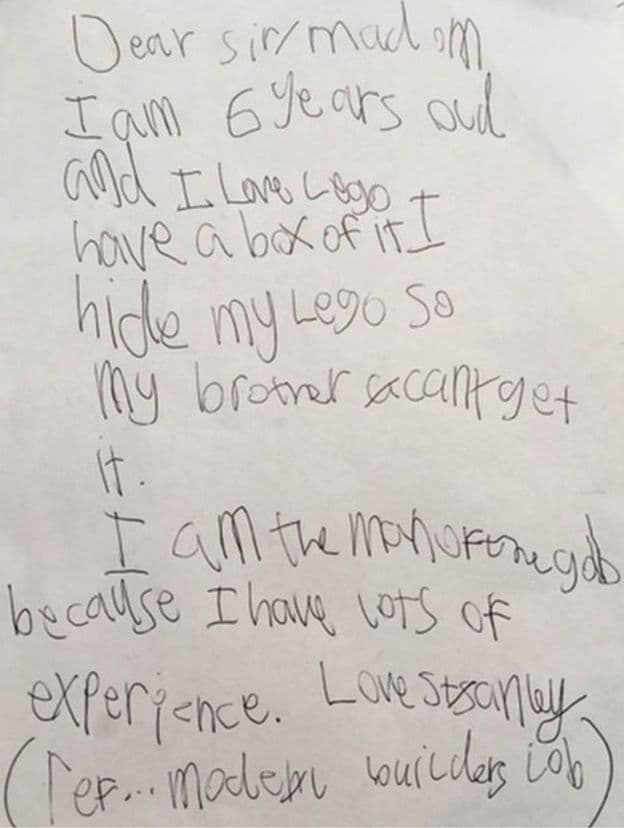 Dear sir/madom
I am 6 years oud
and I Love Lego
have a box of it I
hide my Lego so
my brother cant get
it.
I am the man for the gob
because I have lots of
experience. Love Stanley
(ref... model builders job)